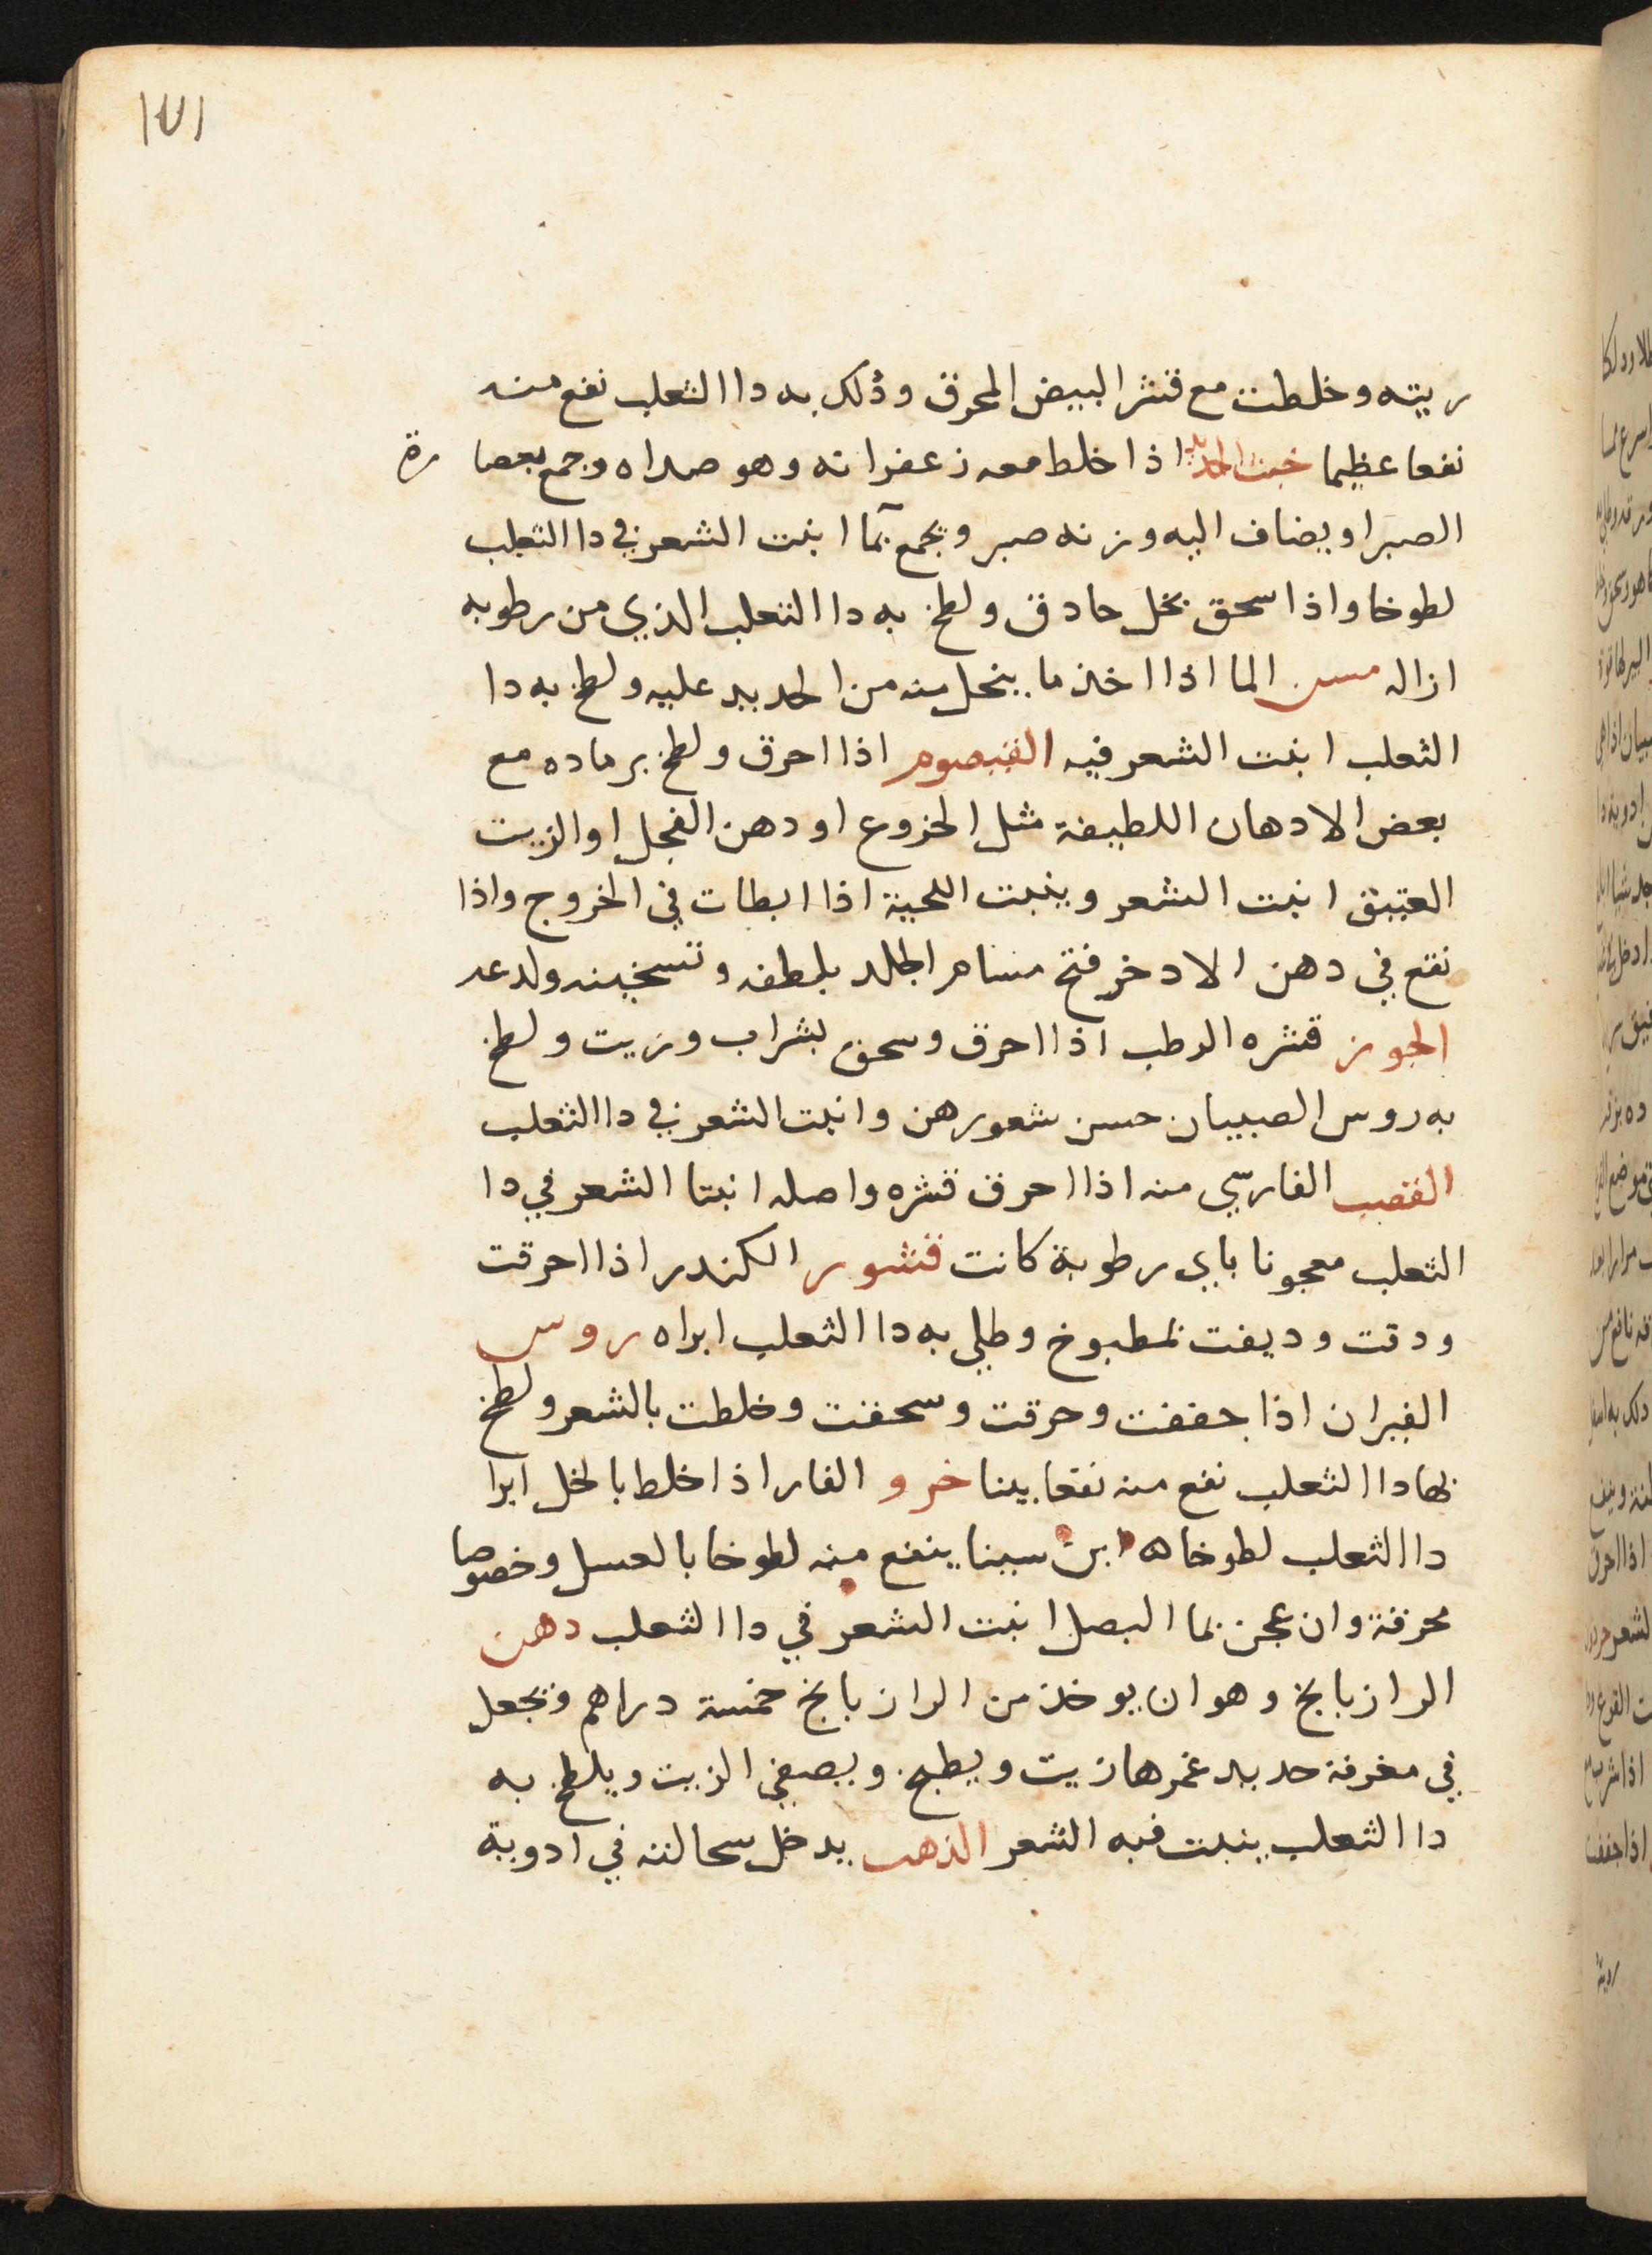 ١٧١
ريته وخلطت مع قشر البيض المحرق وذلك به دا الثعلب نفع منه
نفعا عظيما خبث الحديد اذا خلط معه زعفرانه وهو صداه وجمع بعصارة
الصبر او يضاف اليه وزنه صبر ويجمع بما انبت الشعر في دا الثعلب
لطوخا واذا سحق بخل حادق ولطخ به دا الثعلب الذي من رطوبه
ازاله مسن الما اذا اخذ ما ينحل منه من الحديد عليه ولطخ به دا
الثعلب انبت الشعر فيه القيصوم اذا احرق ولطخ برماده مع
بعض الادهان اللطيفة مثل الخروع او دهن الفجل او الزيت
العتيق انبت الشعر وينبت اللحية اذا ابطات في الخروج واذا
نقع في دهن الادخر فتح مسام الجلد بلطفه وتسخينه ولدعه
الجوز قشره الرطب اذا احرق وسحق بشراب وزيت ولطخ
به روس الصبيان حسن شعورهن وانبت الشعر في دا الثعلب
القصب الفارسي منه اذا احرق قشره واصله انبتا الشعر في دا
الثعلب معجونا باي رطوبة كانت قشور الكندر اذا احرقت
ودقت وديفت بمطبوخ وطلي به دا الثعلب ابراه روس
الفيران اذا جففت وحرقت وسحقت وخلطت بالشعر ولطخ
بها دا الثعلب نفع منه نفعا بينا خرو الفار اذا خلط بالخل ابرا
دا الثعلب لطوخا ه ابن سينا ينفع منه لطوخا بالعسل وخصوصا
محرقة وان عجن بما البصل انبت الشعر في دا الثعلب دهن
الرازيانج وهو ان يوخذ من الرازيانج خمسة دراهم ويجعل
في مغرفة حديد غمرها زيت ويطبخ ويصفي الزيت ويلطخ به
دا الثعلب ينبت فيه الشعر الذهب يدخل سحالته في ادوية